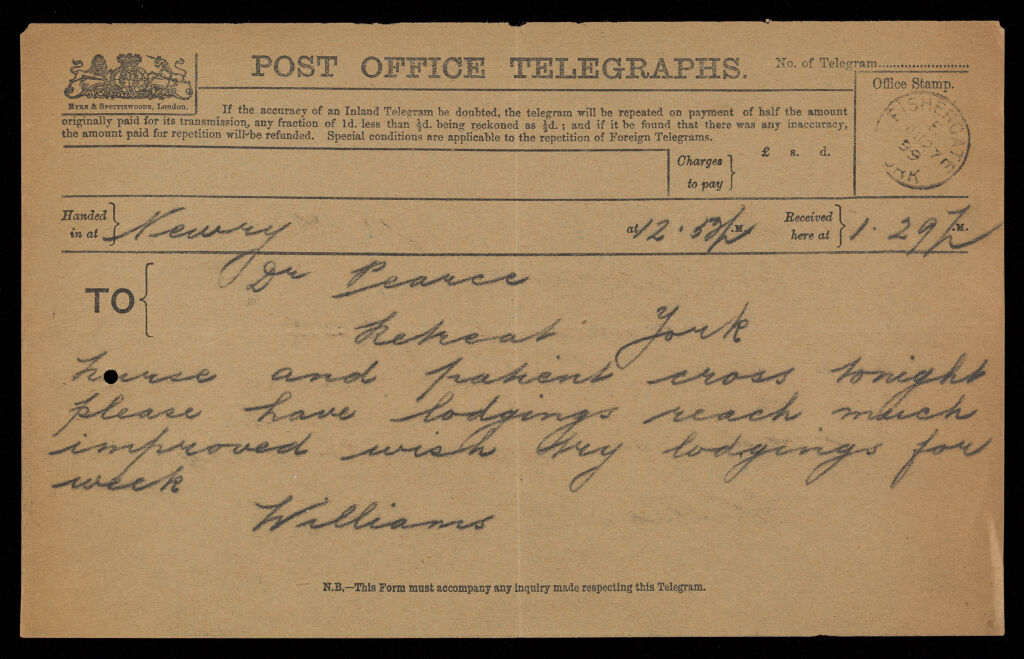 POST OFFICE TELEGRAPHS.
No. of Telegram
Office Stamp.
EYRE & SPOTTISWOODE, LONDON.
If the accuracy of an Inland Telegram be doubted, the telegram will be repeated on payment of half the amount
originally paid for its transmission, any fraction of 1d. less than ½d. being reckoned as ½d.; and if it be found that there was any inaccuracy,
the amount paid for repetition will be refunded. Special conditions are applicable to the repetition of Foreign Telegrams.
FISHERGATE
27
99
YORK
Charges to pay } £ s. d.
Handed in at } Newry at 12.53 p.M. Received here at } 1.29 p.M.
TO { Dr Pearce
Retreat York
nurse and patient cross tonight
please have lodgings reach much
improved wish try lodgings for
week
Williams
N.B.—This Form must accompany any inquiry made respecting this Telegram.